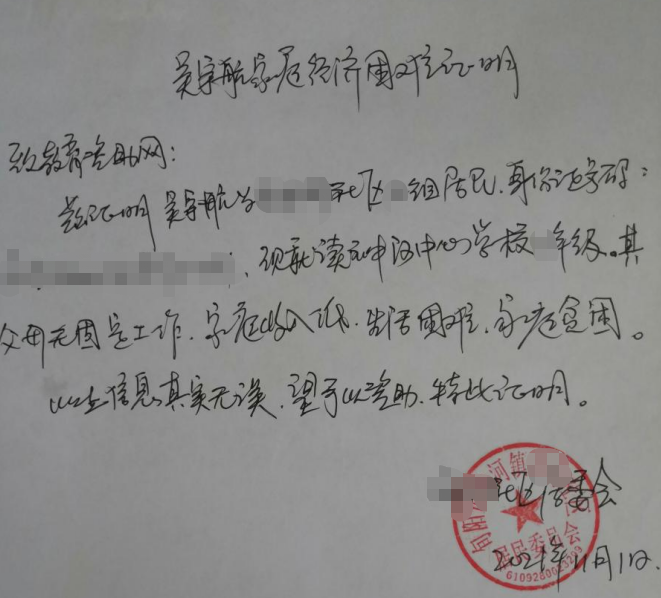 吴宇航家庭经济困难证明
致教育资助网：
兹证明吴宇航为 社区 组居民，身份证号码：
，现就读于中河中心学校 年级。其
父母无固定工作，家庭收入低，生活困难，家庭贫困。
以上信息真实无误，望予以资助，特此证明。
社区居委会
2021年11月1日
旬阳 河镇 居民委员会